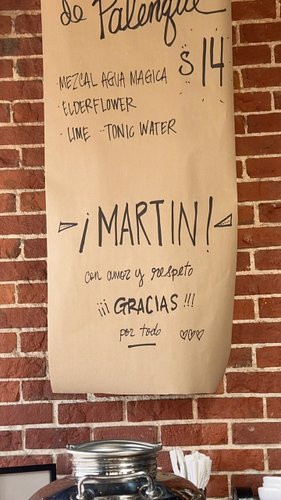 de Palenque
$14
·MEZCAL AGUA MAGICA
·ELDERFLOWER
·LIME ·TONIC WATER
¡MARTIN!
con amor y respeto
¡¡¡GRACIAS!!!
por todo